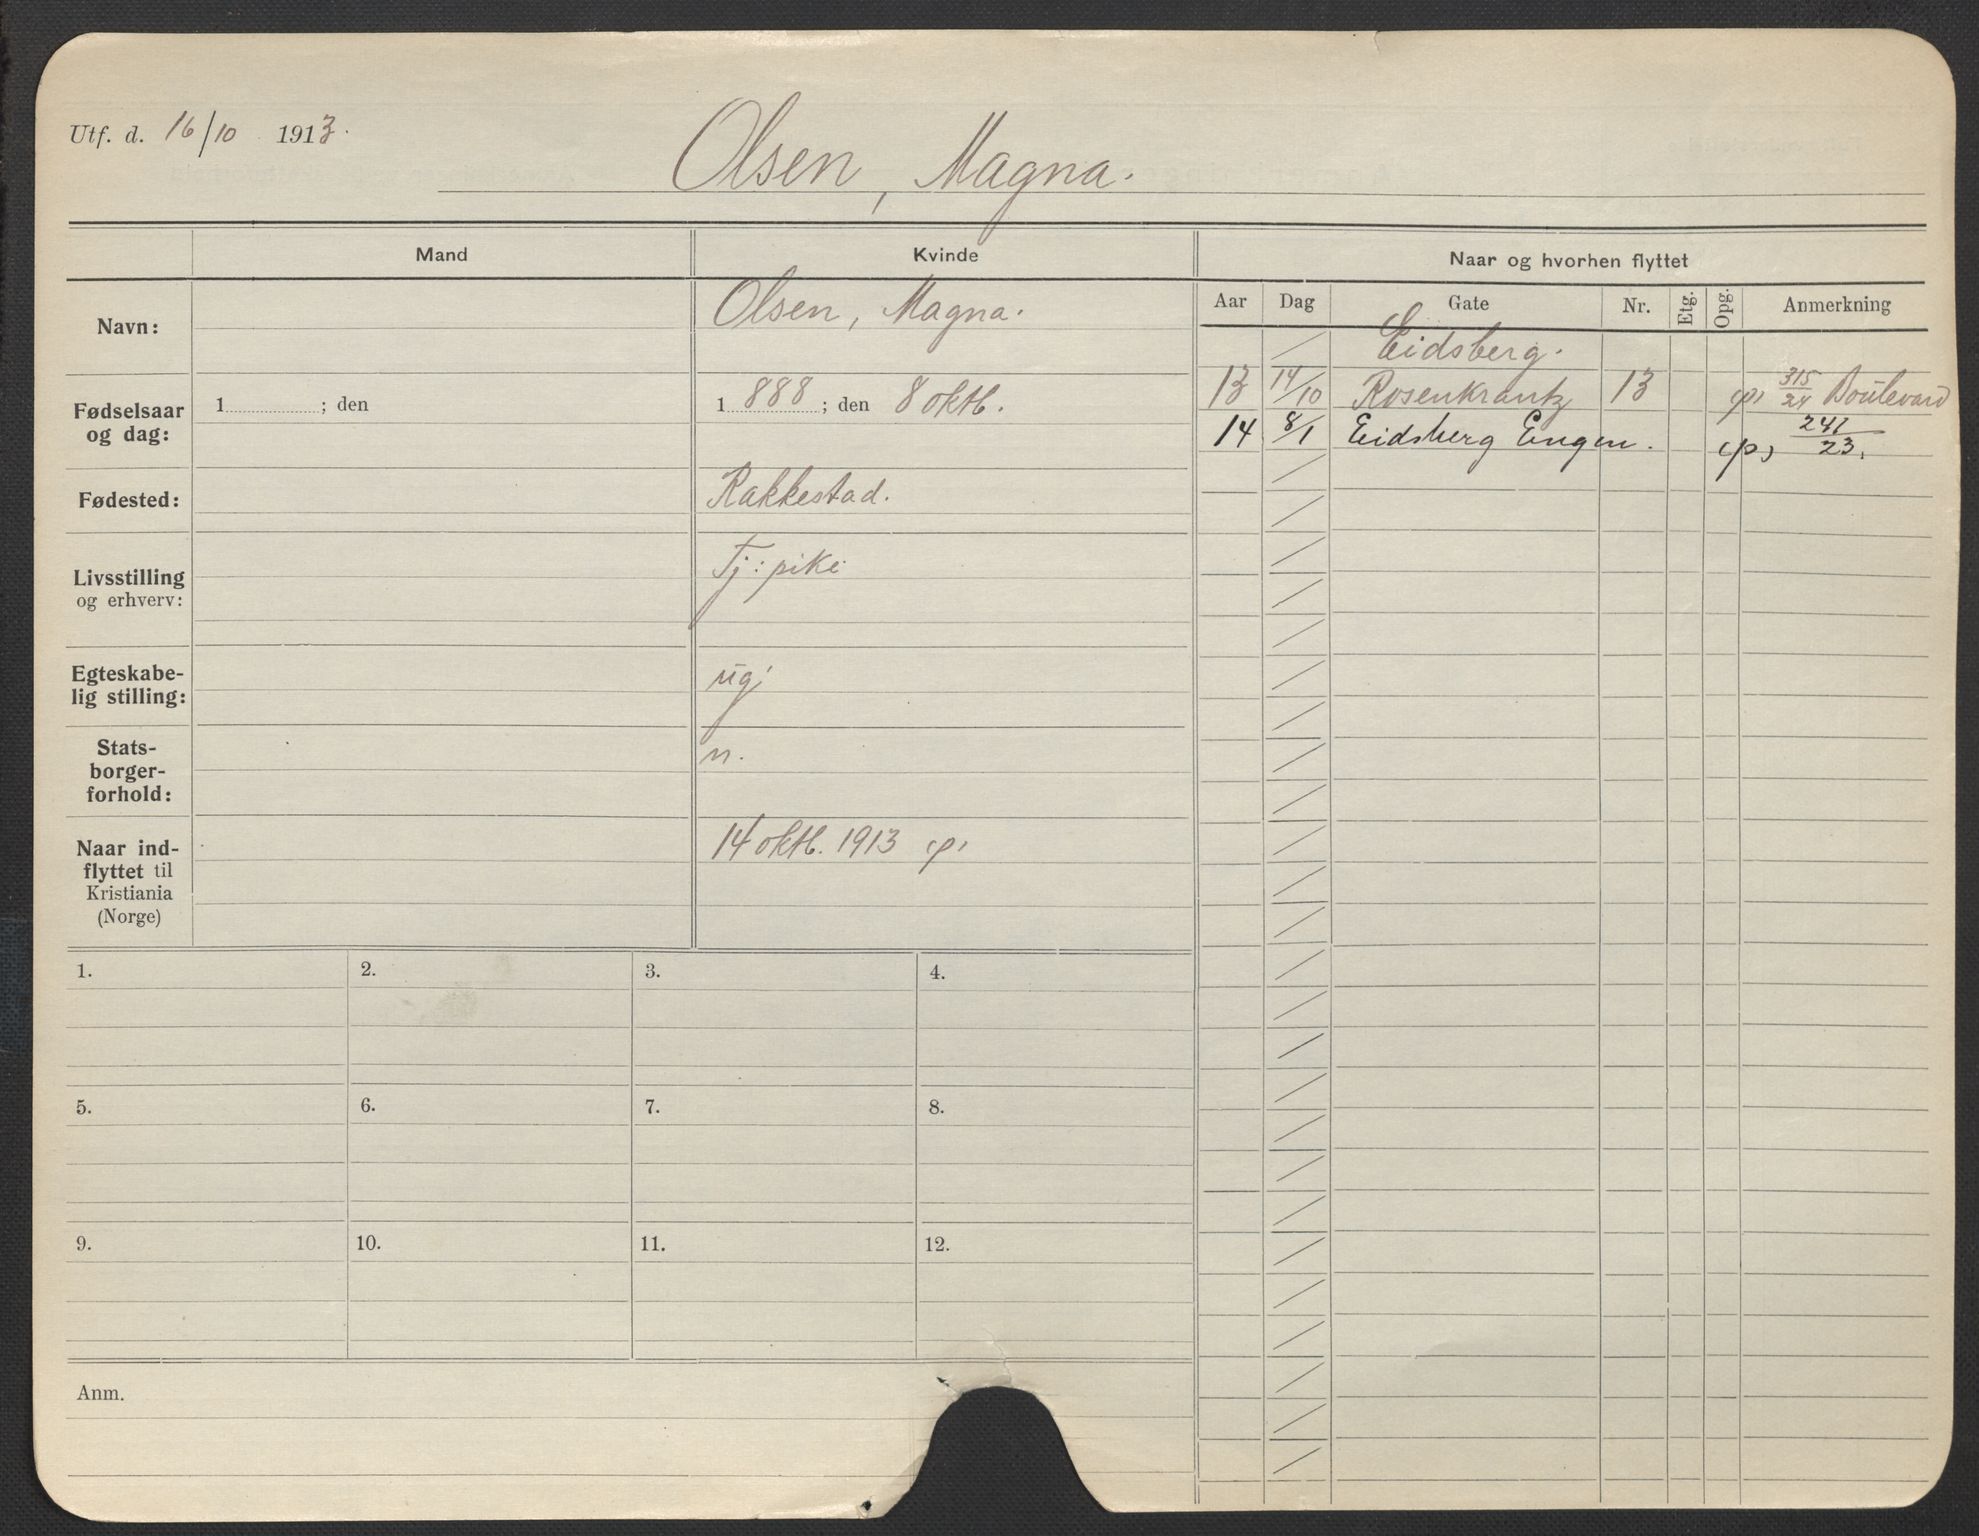 Utf. d. 16/10 1913.
Olsen, Magna.
Mand
Kvinde
Naar og hvorhen flyttet
Navn:
Olsen, Magna.
Fødselsaar
og dag:
1 ; den
1 888 ; den 8 oktb.
Fødested:
Rakkestad.
Livsstilling
og erhverv:
Tj: pike
Egteskabe-
lig stilling:
ug.
Stats-
borger-
forhold:
n.
Naar ind-
flyttet til
Kristiania
(Norge)
14 oktb. 1913
Aar Dag Gate Nr. Etg. Opg. Anmerkning
/ Eidsberg.
13 14/10 Rosenkrantz 13 315/24 Boulevard
14 8/1 Eidsberg Engen. 241/23.
1. 2. 3. 4.
5. 6. 7. 8.
9. 10. 11. 12.
Anm.